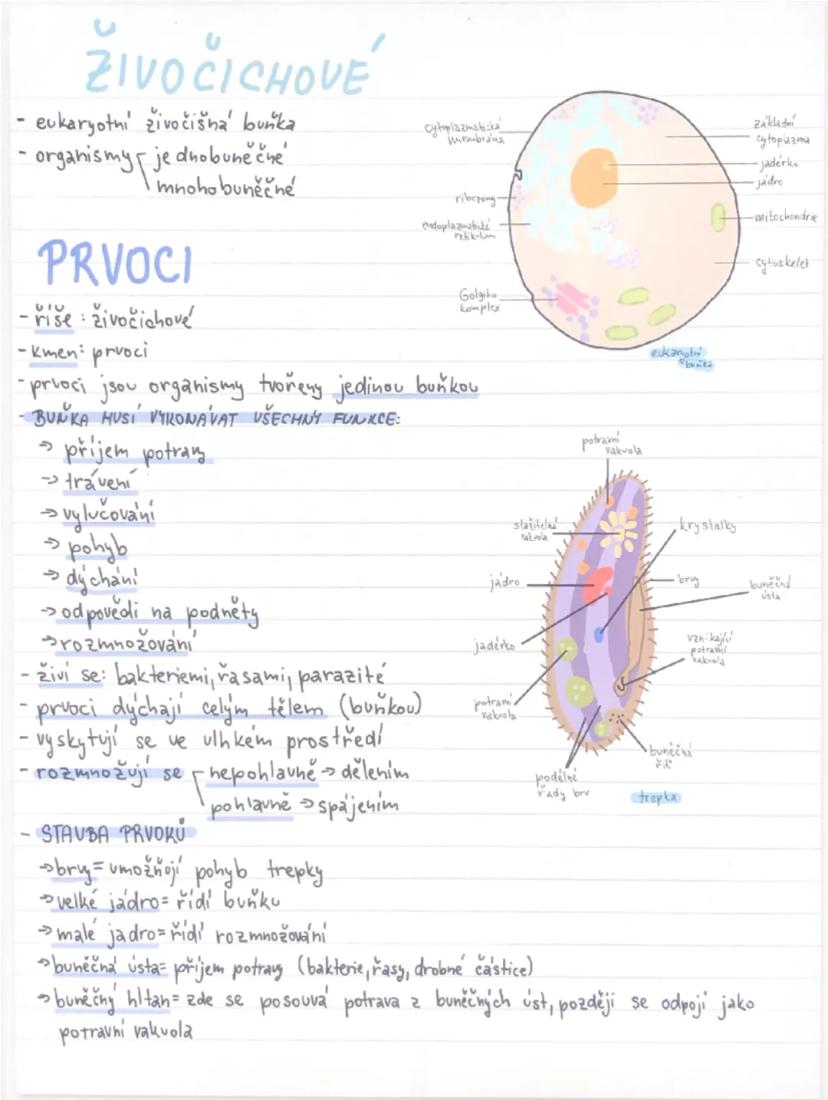 ŽIVOČICHOVÉ
- eukaryotní živočišná buňka
- organismy jednobuněčné
mnohobuněčné
cytoplazmatická membrána
ribozomy
endoplazmatické retikulum
Golgiho komplex
základní cytoplazma
jadérko
jádro
mitochondrie
cytoskelet
eukaryotní buňka
PRVOCI
- říše: živočichové
- kmen: prvoci
- prvoci jsou organismy tvořeny jedinou buňkou
- BUŇKA MUSÍ VYKONÁVAT VŠECHNY FUNKCE:
→ příjem potravy
→ trávení
→ vylučování
→ pohyb
→ dýchání
→ odpovědi na podněty
→ rozmnožování
- živí se: bakteriemi, řasami, parazité
- prvoci dýchají celým tělem (buňkou)
- vyskytují se ve vlhkém prostředí
- rozmnožují se nepohlavně → dělením
pohlavně → spájením
potravní vakuola
stažitelná vakuola
jádro
jadérko
potravní vakuola
podélné řady brv
krystalky
brvy
buněčná ústa
vznikající potravní vakuola
buněčná řiť
trepka
- STAVBA PRVOKŮ
→ brvy = umožňojí pohyb trepky
→ velké jádro = řídí buňku
→ malé jadro = řídí rozmnožování
→ buněčná ústa = příjem potravy (bakterie, řasy, drobné částice)
→ buněčný hltan = zde se posouvá potrava z buněčných úst, později se odpojí jako
potravní vakuola